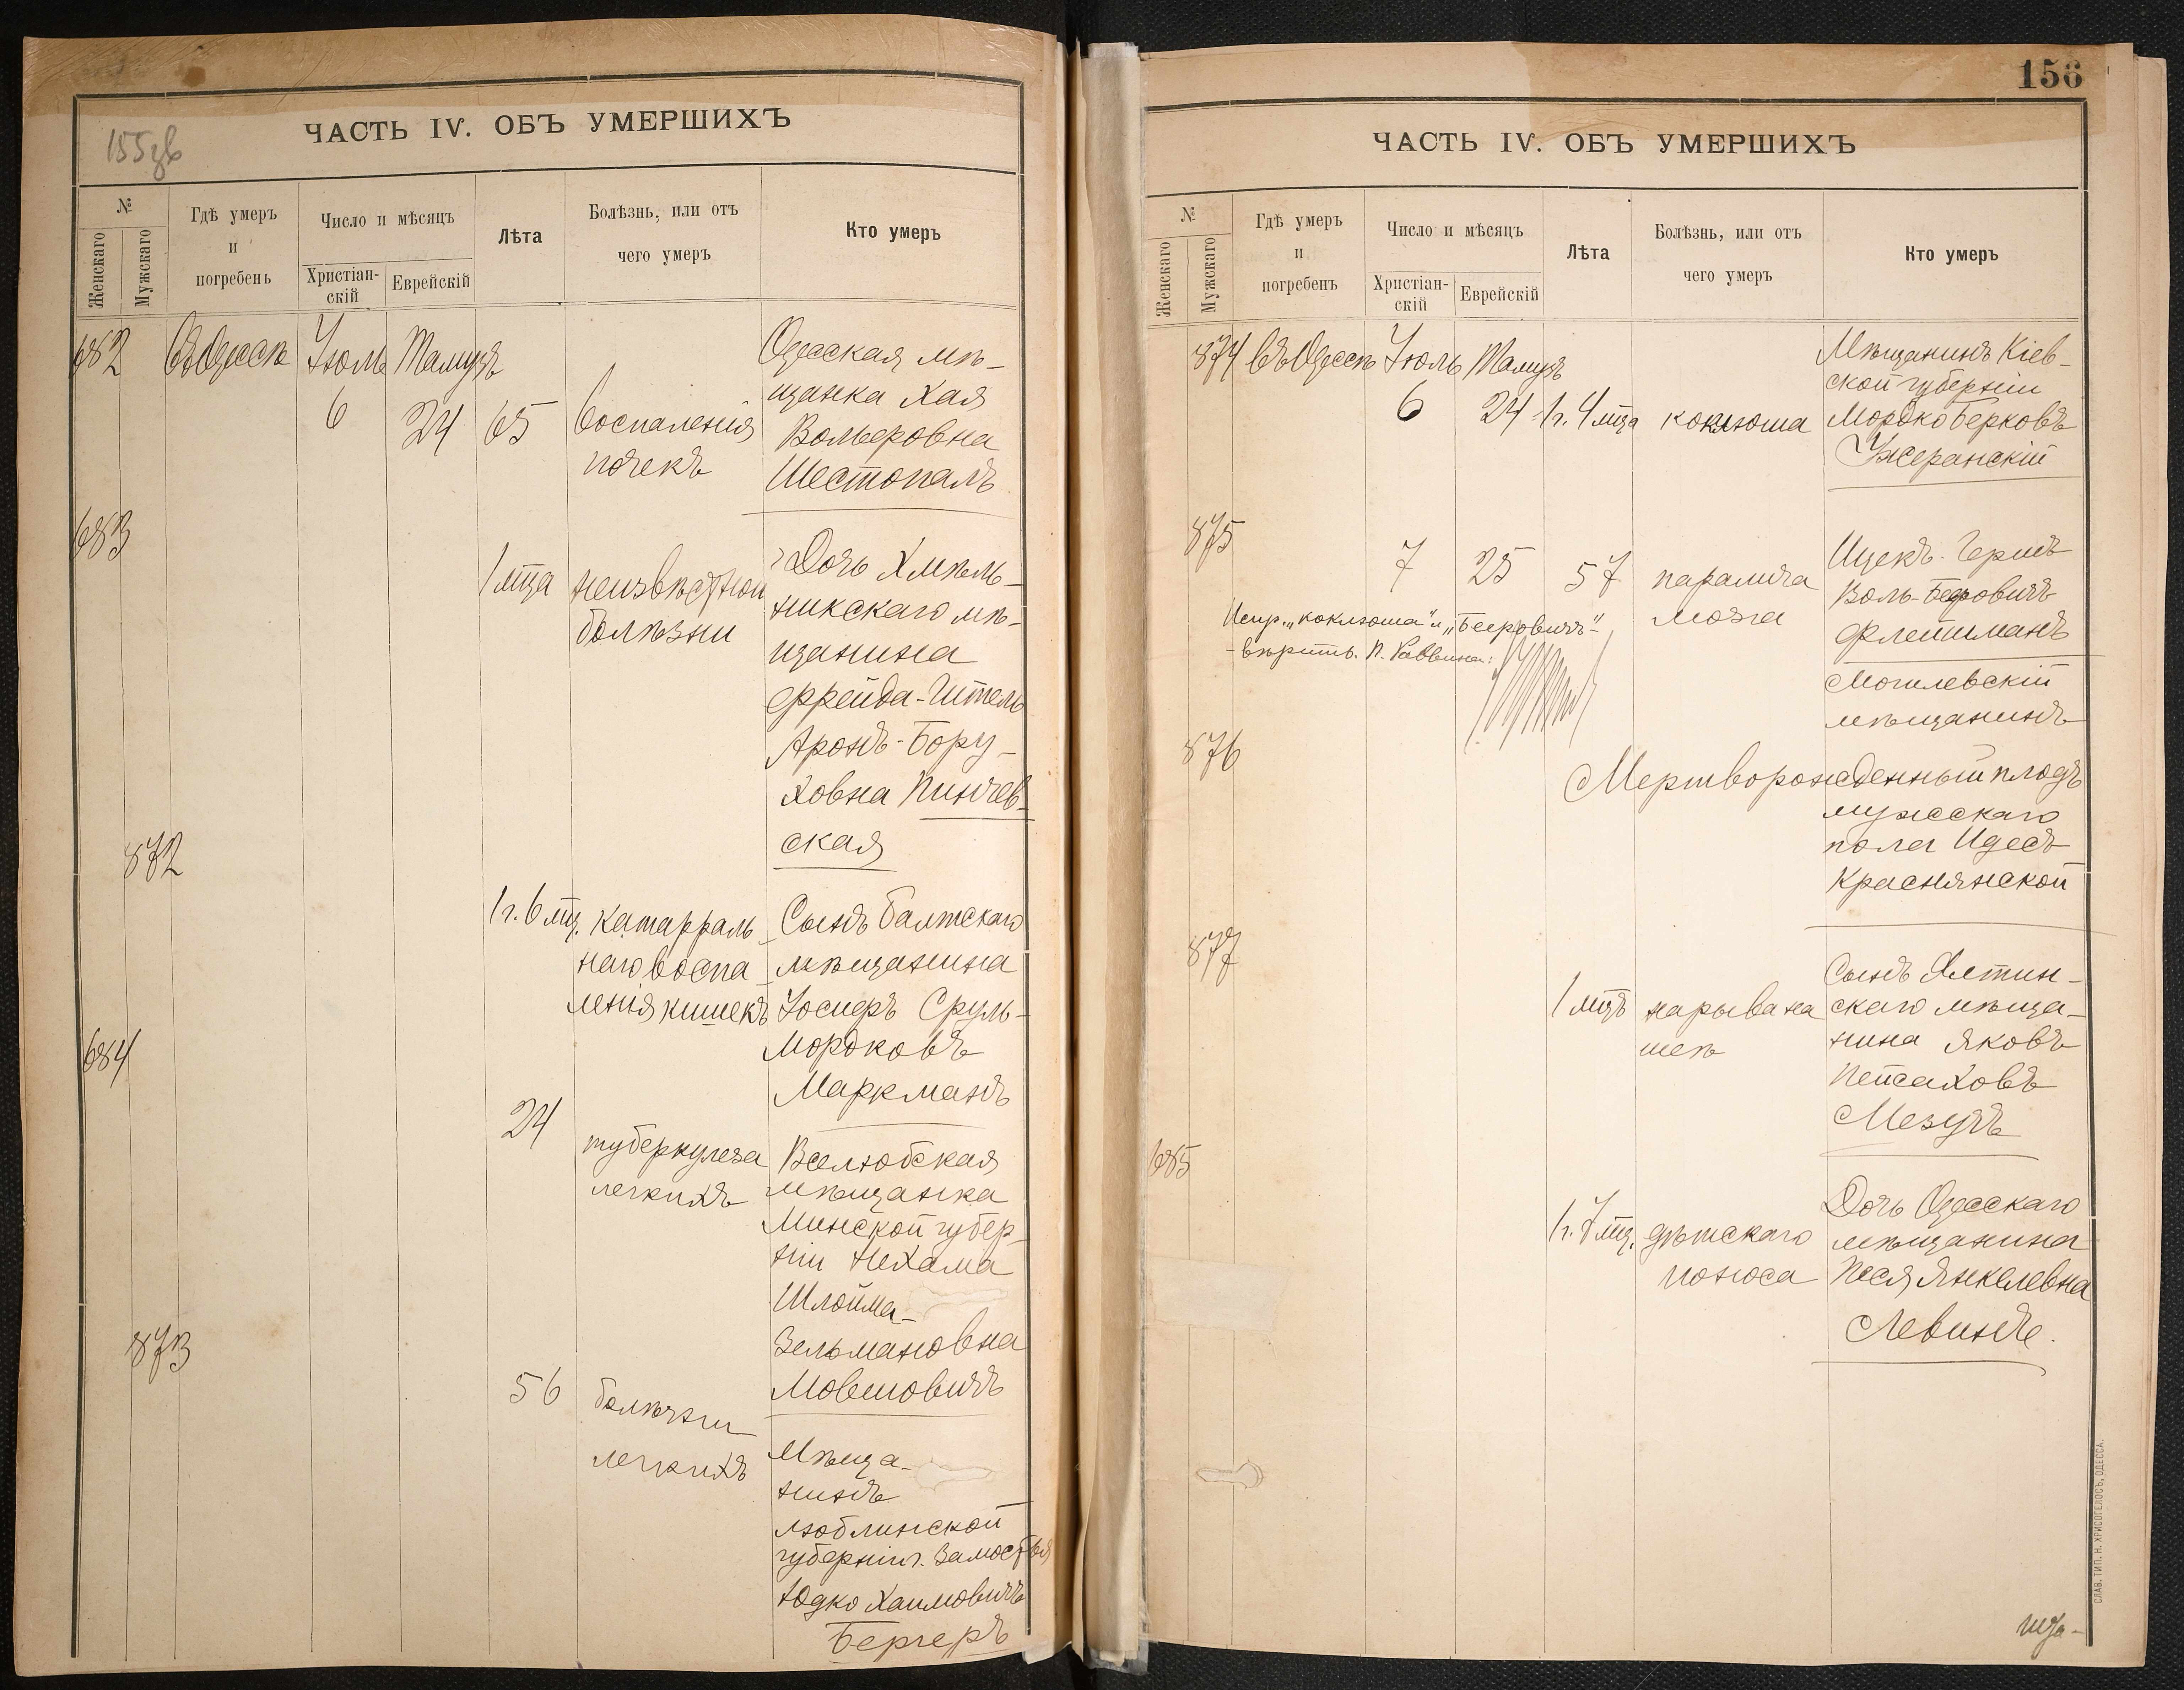 155зв
ЧАСТЬ IV. ОБЪ УМЕРШИХЪ
№
Женскаго
Мужскаго
Гдѣ умеръ
и
погребенъ
Число и мѣсяцъ
Христіан-
скій
Еврейскій
Лѣта
Болѣзнь, или отъ
чего умеръ
Кто умеръ
682 въ Одессѣ Іюль Тамузъ
6 24 65 воспаленія
почекъ
Одесская мѣ-
щанка Хая
Вольфовна
Шестопалъ
683
1 мца неизвѣстной
болѣзни
Дочь Хмѣль-
никскаго мѣ-
щанина
Фрейда-Гитель
Аронъ-Бору-
ховна Пинчев-
ская
872
1 г. 6 мц. катарраль-
наго воспа-
ленія кишекъ
Сынъ Балтскаго
мѣщанина
Іосифъ Сруль-
Мордковъ
Маркманъ
684
24
туберкулеза
легкихъ
Вселюбская
мѣщанка
Минской губер-
ніи Нехама
Шлойма-
Зельмановна
Мовшовичъ
873
56 болѣзни
легкихъ
Мѣща-
нинъ
Люблинской
губерніи г. Замостья
Юдко Хаимовичъ
Бергеръ
156
ЧАСТЬ IV. ОБЪ УМЕРШИХЪ
№
Женскаго
Мужскаго
Гдѣ умеръ
и
погребенъ
Число и мѣсяцъ
Христіан-
скій
Еврейскій
Лѣта
Болѣзнь, или отъ
чего умеръ
Кто умеръ
874 въ Одессѣ Іюль Тамузъ
6 24 1 г. 4 мца коклюша
Мѣщанинъ Кіев-
ской губерніи
Мордко Берковъ
Ужеранскій
875
7 25 57 паралича
мозга
Ицекъ-Гершъ
Воль-Беровичъ
Флейшманъ
Могилевскій
мѣщанинъ
Испр. „коклюша" и „Беровичъ"-
вѣрить. П. Раввина:
876
Мертворожденный плодъ
мужескаго
пола Идесъ
Краснянской
877
1 мцъ нарыва на
шеѣ
Сынъ Ялтин-
скаго мѣща-
нина Яковъ
Пейсаховъ
Мезугъ
685
1 г. 7 мц. дѣтскаго
поноса
Дочь Одесскаго
мѣщанина
Песя Янкелевна
Левинъ.
СЛАВ. ТИП. Н. ХРИСОГЕЛОСЪ, ОДЕССА.